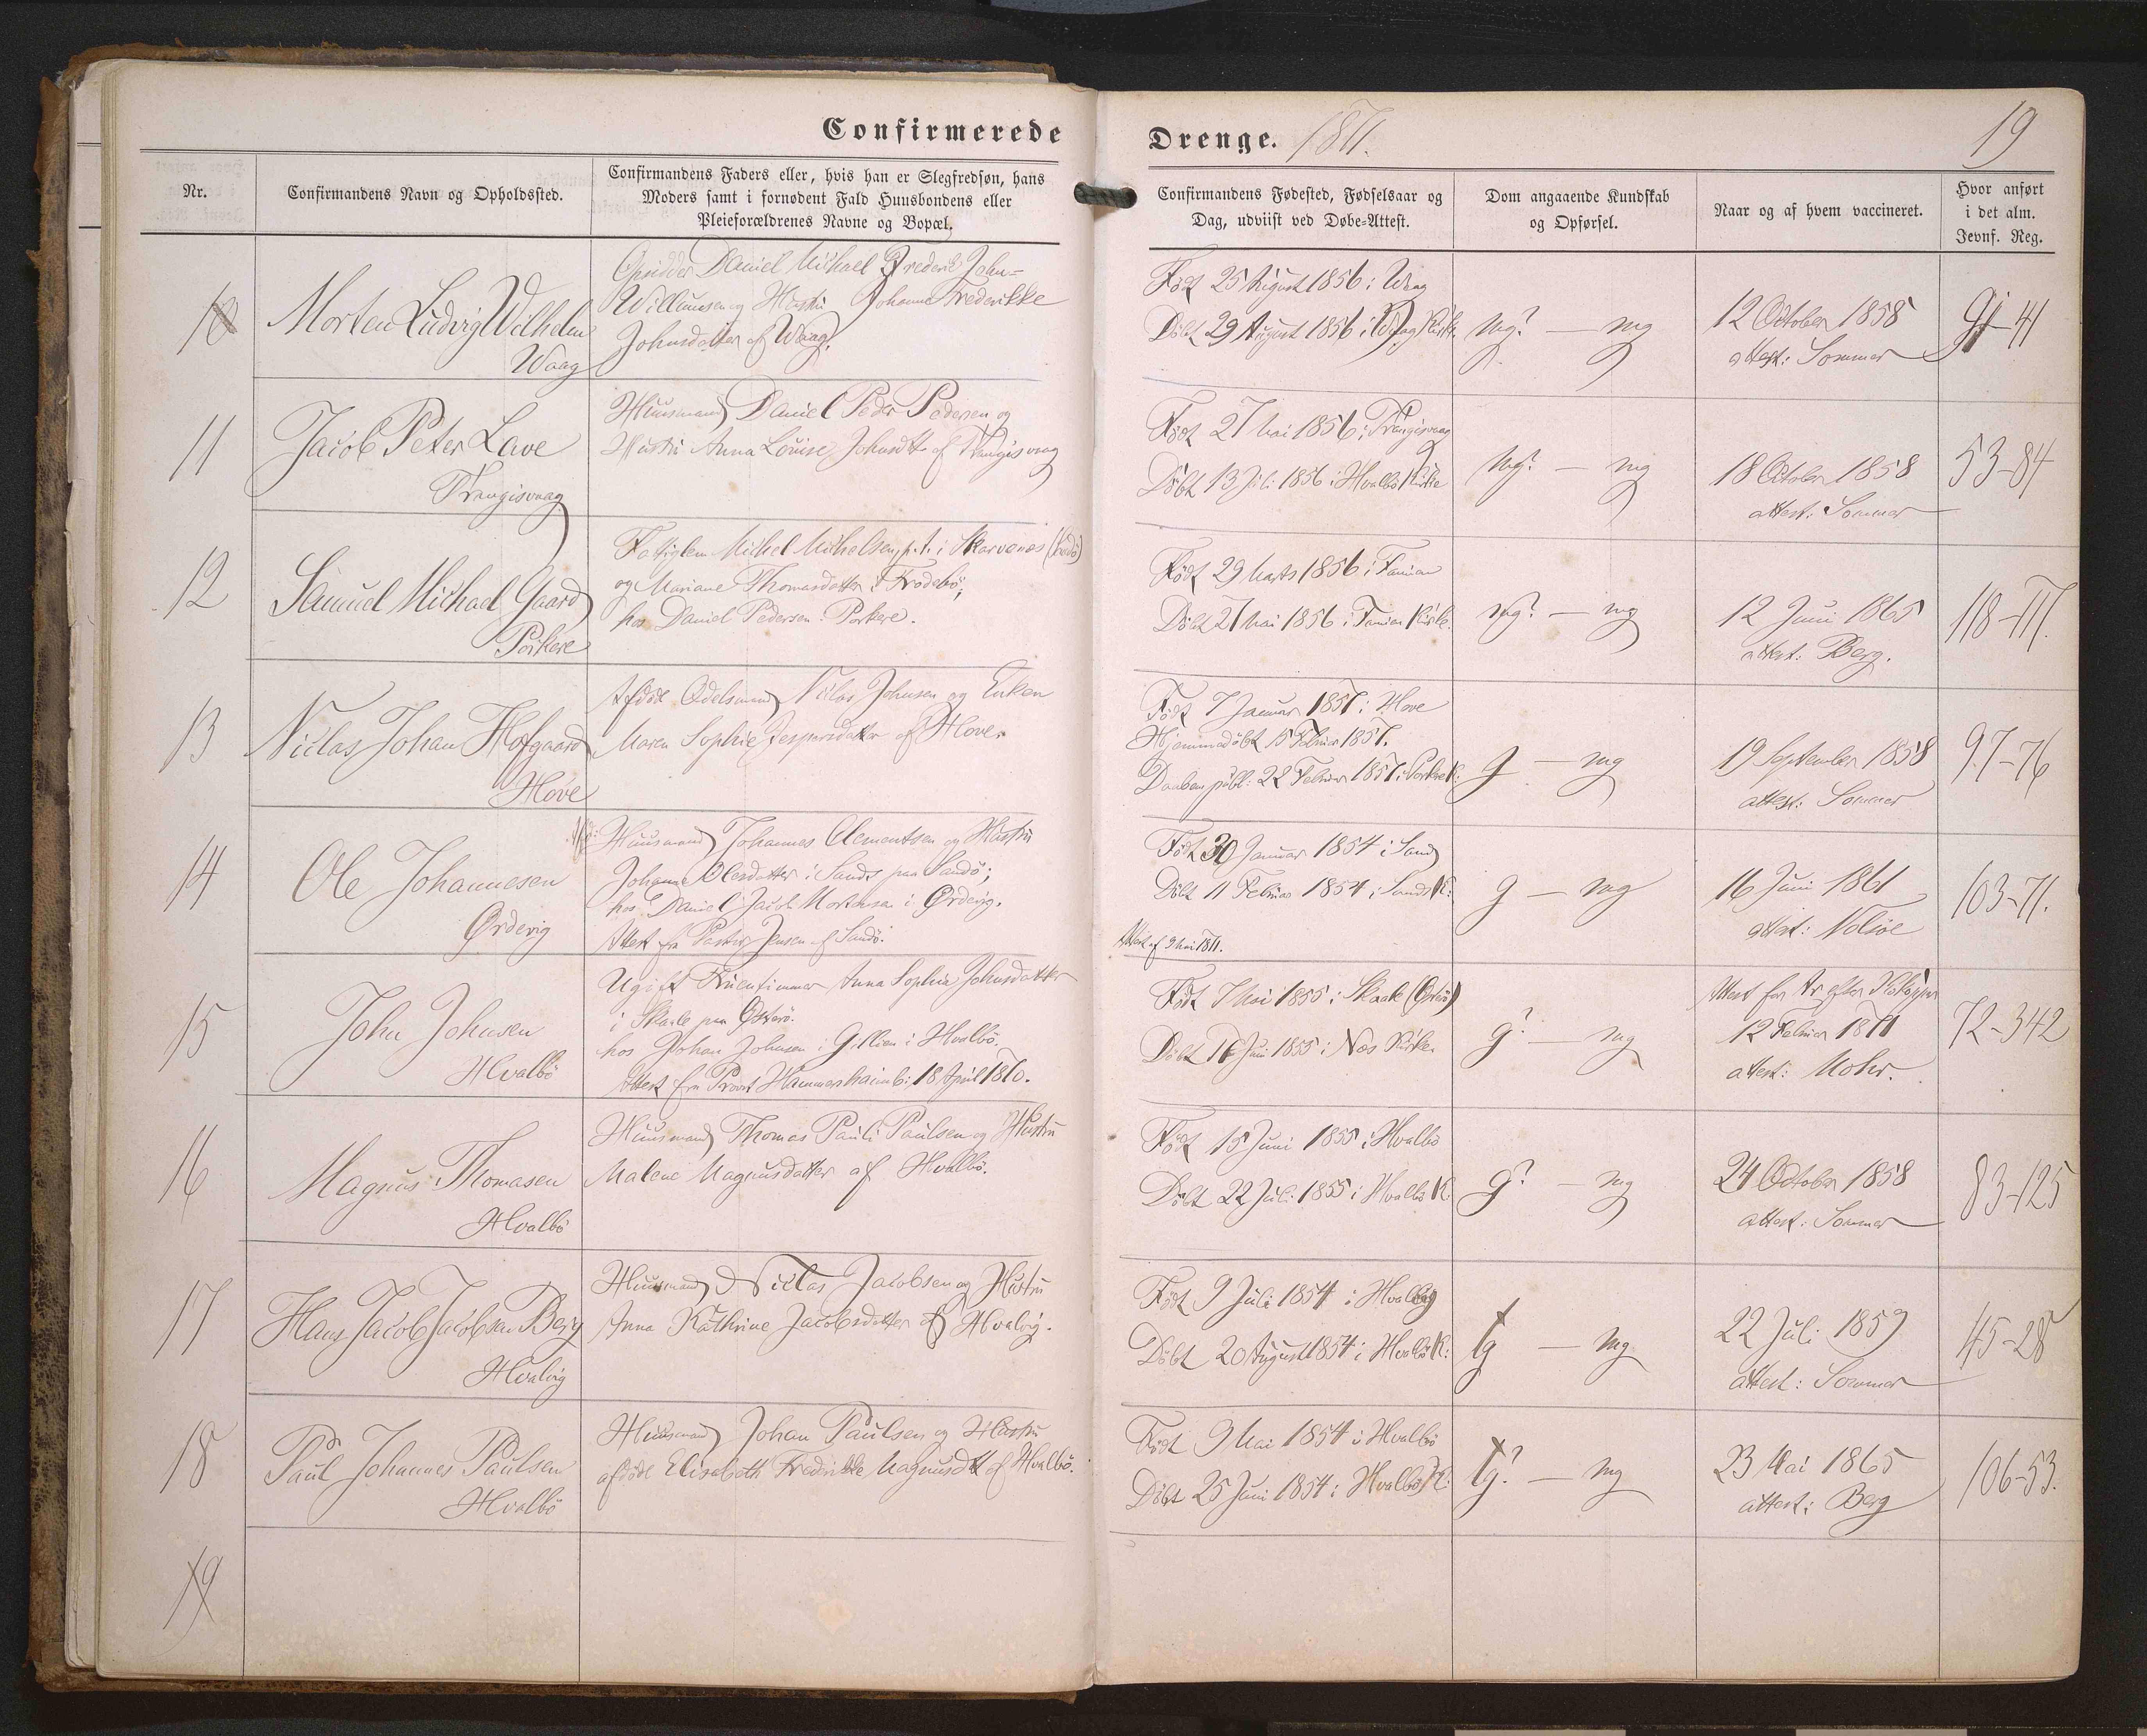 Confirmerede Drenge. 1871.
19
Nr.
Confirmandens Navn og Opholdssted.
Confirmandens Faders eller, hvis han er Slegfredsøn, hans
Moders samt i fornødent Fald Huusbondens eller
Pleieforældrenes Navne og Bopæl.
Confirmandens Fødested, Fødselsaar og
Dag, udviist ved Døbe-Attest.
Dom angaaende Kundskab
og Opførsel.
Naar og af hvem vaccineret.
Hvor anført
i det alm.
Jevnf. Reg.
10
Morten Ludvig Wilhelm
Waag
Opsidder Daniel Michael Frederik John-
Willumsen og Hustru Johanne Frederikke
Johnsdatter af Waag.
Født 25 August 1856 i Waag
Döbt 29 August 1856 i Waag Kirke
mg? — mg
12 October 1858
attest: Sommer
91-41
11
Jacob Peter Lave
Trangisvaag
Huusmand Daniel Peder Pedersen og
Hustru Anna Louise Johnsdtr af Trangisvaag
Født 27 Mai 1856 i Trangisvaag
Döbt 13 Juli 1856 i Hvalbö Kirke
mg? — mg
18 October 1858
attest: Sommer
53-84
12
Samuel Michael Gaard
Porkere
Fattiglem Michel Michelsen p.t. i Skarvenæs (Sandö)
og Mariane Thomasdatter i Frodebö;
hos Daniel Pedersen i Porkere.
Født 29 Marts 1856 i Famien
Döbt 21 Mai 1856 i Famien Kirke
mg? — mg
12 Juni 1865
attest: Berg.
118-117.
13
Niclas Johan Hofgaard
Hove
Afdöde Odelsmand Niclas Johnsen og Enken
Maren Sophie Jespersdatter af Hove.
Født 7 Januar 1857 i Hove
Hjemmedöbt 15 Februar 1857.
Daaben publ: 22 Februar 1857 i Porkere K:
g — mg
19 September 1858
attest: Sommer
97-76
14
Ole Johannesen
Ørdevig
Afd: Huusmand Johannes Clementsen og Hustru
Johanne Olesdatter i Sands paa Sandö;
hos Daniel Jacob Mortensen i Ørdevig.
Attest fra Pastor Jensen af Sandö.
Født 30 Januar 1854 i Sand
Döbt 11 Februar 1854 i Sands K:
Attest af 9 Mai 1871.
g — mg
16 Juni 1861
attest: Nolsöe
103-71.
15
John Johnsen
Hvalbö
Ugift Fruentimmer Anna Sophie Johnsdatter
i Skaale paa Østerö.
hos Johan Johnsen i Gillien i Hvalbö.
Attest fra Provst Hammershaimb: 18 April 1870.
Født 7 Mai 1855 i Skaale (Österö)
Döbt 16 Juni 1855 i Næs Kirke
g? — mg
Attest for Ar efter Kokopper
12 Februar 1871
attest: Mohr.
72-342
16
Magnus Thomasen
Hvalbö
Huusmand Thomas Pauli Paulsen og Hustru
Malene Magnusdatter af Hvalbö.
Født 15 Juni 1855 i Hvalbö
Döbt 22 Juli 1855 i Hvalbö K:
g? — mg
24 October 1858
attest: Sommer
83-125
17
Hans Jacob Jacobsen Berg
Hvalvig
Huusmand Niclas Jacobsen og Hustru
Anna Kathrine Jacobsdatter af Hvalvig.
Født 9 Juli 1854 i Hvalvig
Döbt 20 August 1854 i Hvalbö K:
tg — mg
22 Juli 1859
attest: Sommer
45-28
18
Paul Johannes Paulsen
Hvalbö
Huusmand Johan Paulsen og Hustru
afdöde Elisabeth Fredrikke Magnusdtr af Hvalbö.
Født 9 Mai 1854 i Hvalbö
Döbt 25 Juni 1854 i Hvalbö K:
tg? — mg
23 Mai 1865
attest: Berg
106-53.
19